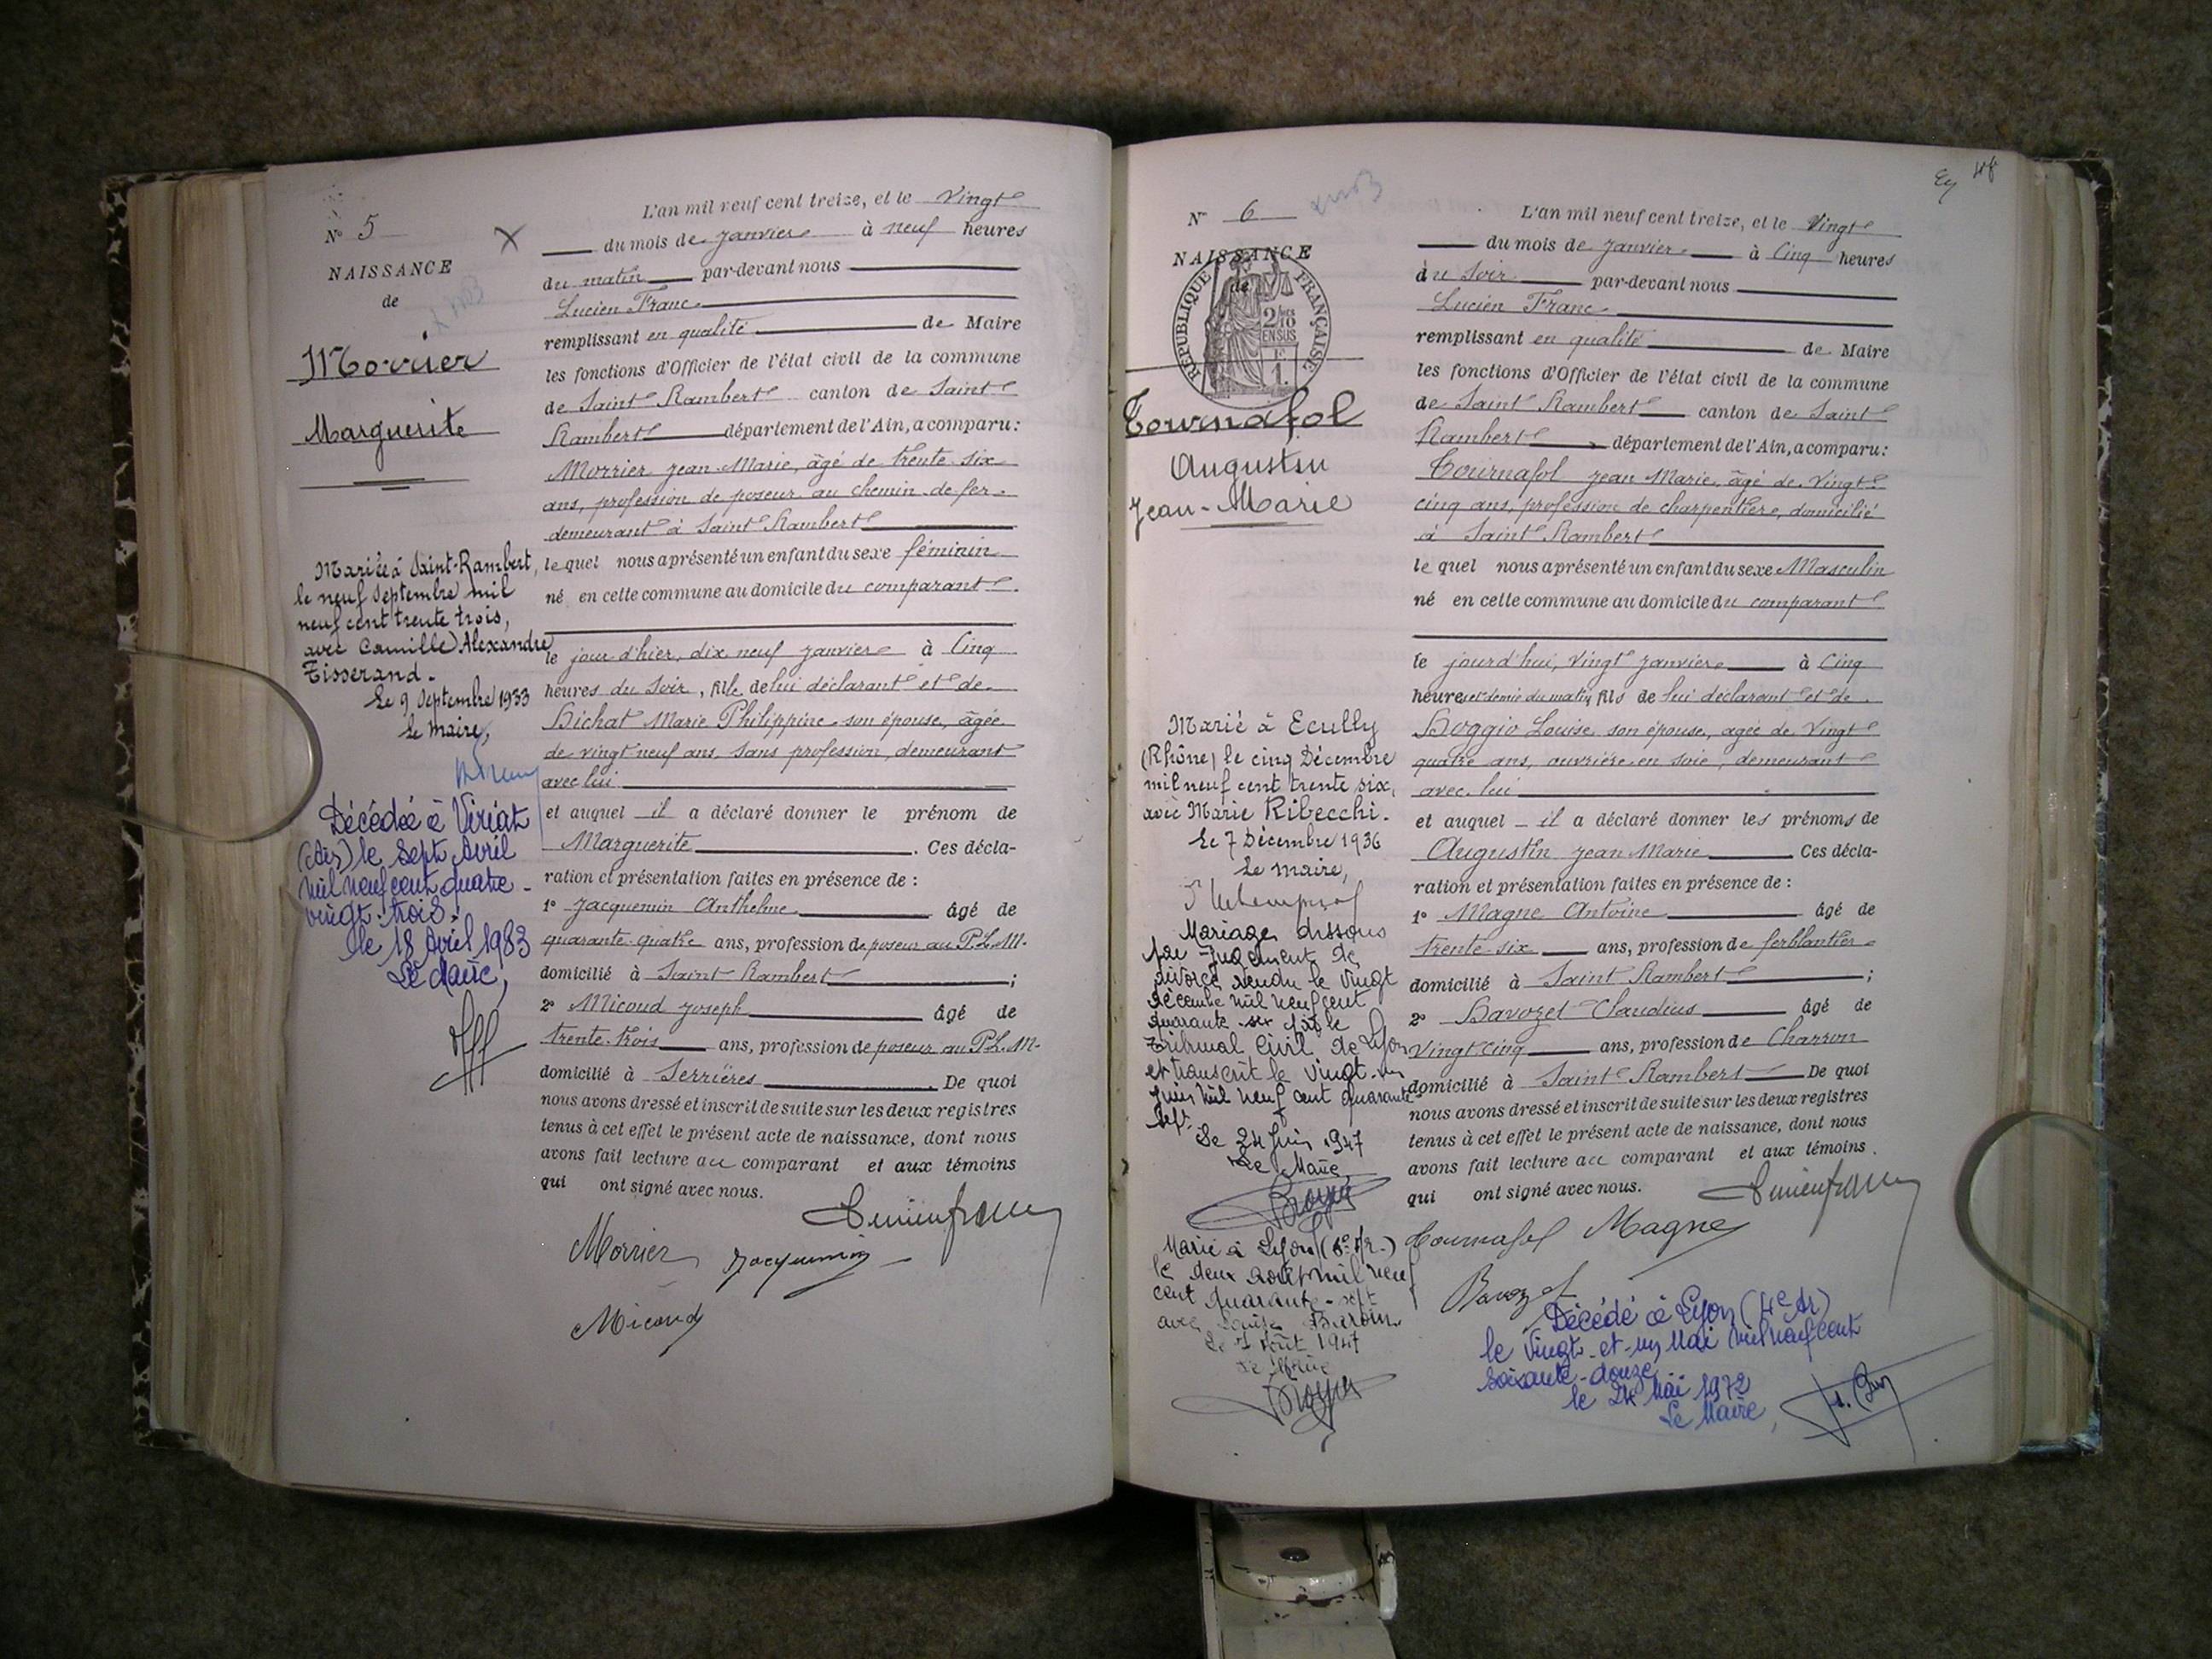 N° 5
NAISSANCE
de
Morrier
Marguerite
Mariée à Saint-Rambert,
le neuf Septembre mil
neuf cent trente trois,
avec Camille Alexandre
Tisserand.
Le 9 Septembre 1933
Le maire,
Décédée à Viriat
(Ain) le sept Avril
mil neuf cent quatre-
vingt-trois.
le 18 Avril 1983
Le Maire,
L'an mil neuf cent treize, et le Vingt
du mois de Janvier à neuf heures
du matin par-devant nous
Lucien Franc
remplissant en qualité de Maire
les fonctions d'Officier de l'état civil de la commune
de Saint Rambert canton de Saint
Rambert département de l'Ain, a comparu:
Morrier Jean Marie, âgé de trente six
ans, profession de poseur au chemin de fer
demeurant à Saint Rambert
le quel nous a présenté un enfant du sexe féminin
né en cette commune au domicile du comparant
le jour d'hier, dix neuf Janvier à Cinq
heures du Soir, fille de lui déclarant et de
Bichat Marie Philippine son épouse, âgée
de vingt neuf ans, sans profession, demeurant
avec lui
et auquel il a déclaré donner le prénom de
Marguerite. Ces décla-
ration et présentation faites en présence de :
1° Jacquemin Anthelme âgé de
quarante quatre ans, profession de poseur au P.L.M.
domicilié à Saint Rambert ;
2° Micoud Joseph âgé de
trente-trois ans, profession de poseur au P.L.M.
domicilié à Serrières. De quoi
nous avons dressé et inscrit de suite sur les deux registres
tenus à cet effet le présent acte de naissance, dont nous
avons fait lecture au comparant et aux témoins
qui ont signé avec nous.
Lucien Franc
Morrier Jacquemin
Micoud
48
N° 6
NAISSANCE
de
RÉPUBLIQUE FRANÇAISE
2/10
EN SUS
1F
Tournafol
Augustin
Jean-Marie
Marié à Ecully
(Rhône) le cinq Décembre
mil neuf cent trente six,
avec Marie Ribecchi.
Le 7 Décembre 1936
Le maire,
Mariage dissous
par jugement de
divorce rendu le vingt
décembre mil neuf cent
quarante-six par le
Tribunal Civil de Lyon
et transcrit le vingt-un
juin mil neuf cent quarante
sept.
Le 24 Juin 1947
Le Maire
Marié à Lyon (6e Ar.)
le deux août mil neuf
cent quarante-sept
avec Louise
Le 7 Août 1947
Le Maire
L'an mil neuf cent treize, et le Vingt
du mois de Janvier à Cinq heures
du Soir par-devant nous
Lucien Franc
remplissant en qualité de Maire
les fonctions d'Officier de l'état civil de la commune
de Saint Rambert canton de Saint
Rambert département de l'Ain, a comparu:
Tournafol Jean Marie, âgé de Vingt
cinq ans, profession de charpentier, domicilié
à Saint Rambert
le quel nous a présenté un enfant du sexe Masculin
né en cette commune au domicile du comparant
le jourd'hui, Vingt Janvier à Cinq
heures et demie du matin, fils de lui déclarant et de
Boggio Louise son épouse, agée de Vingt
quatre ans, ouvrière en soie, demeurant
avec lui
et auquel il a déclaré donner les prénoms de
Augustin Jean Marie Ces décla-
ration et présentation faites en présence de :
1° Magne Antoine âgé de
trente-six ans, profession de ferblantier
domicilié à Saint Rambert ;
2° Bavozet Claudius âgé de
Vingt cinq ans, profession de Charron
domicilié à Saint Rambert De quoi
nous avons dressé et inscrit de suite sur les deux registres
tenus à cet effet le présent acte de naissance, dont nous
avons fait lecture au comparant et aux témoins
qui ont signé avec nous.
Lucien Franc
Tournafol Magne
Bavozet
Décédé à Lyon (4e Ar)
le Vingt-et-un Mai mil neuf cent
soixante-douze
le 24 Mai 1972
Le Maire,